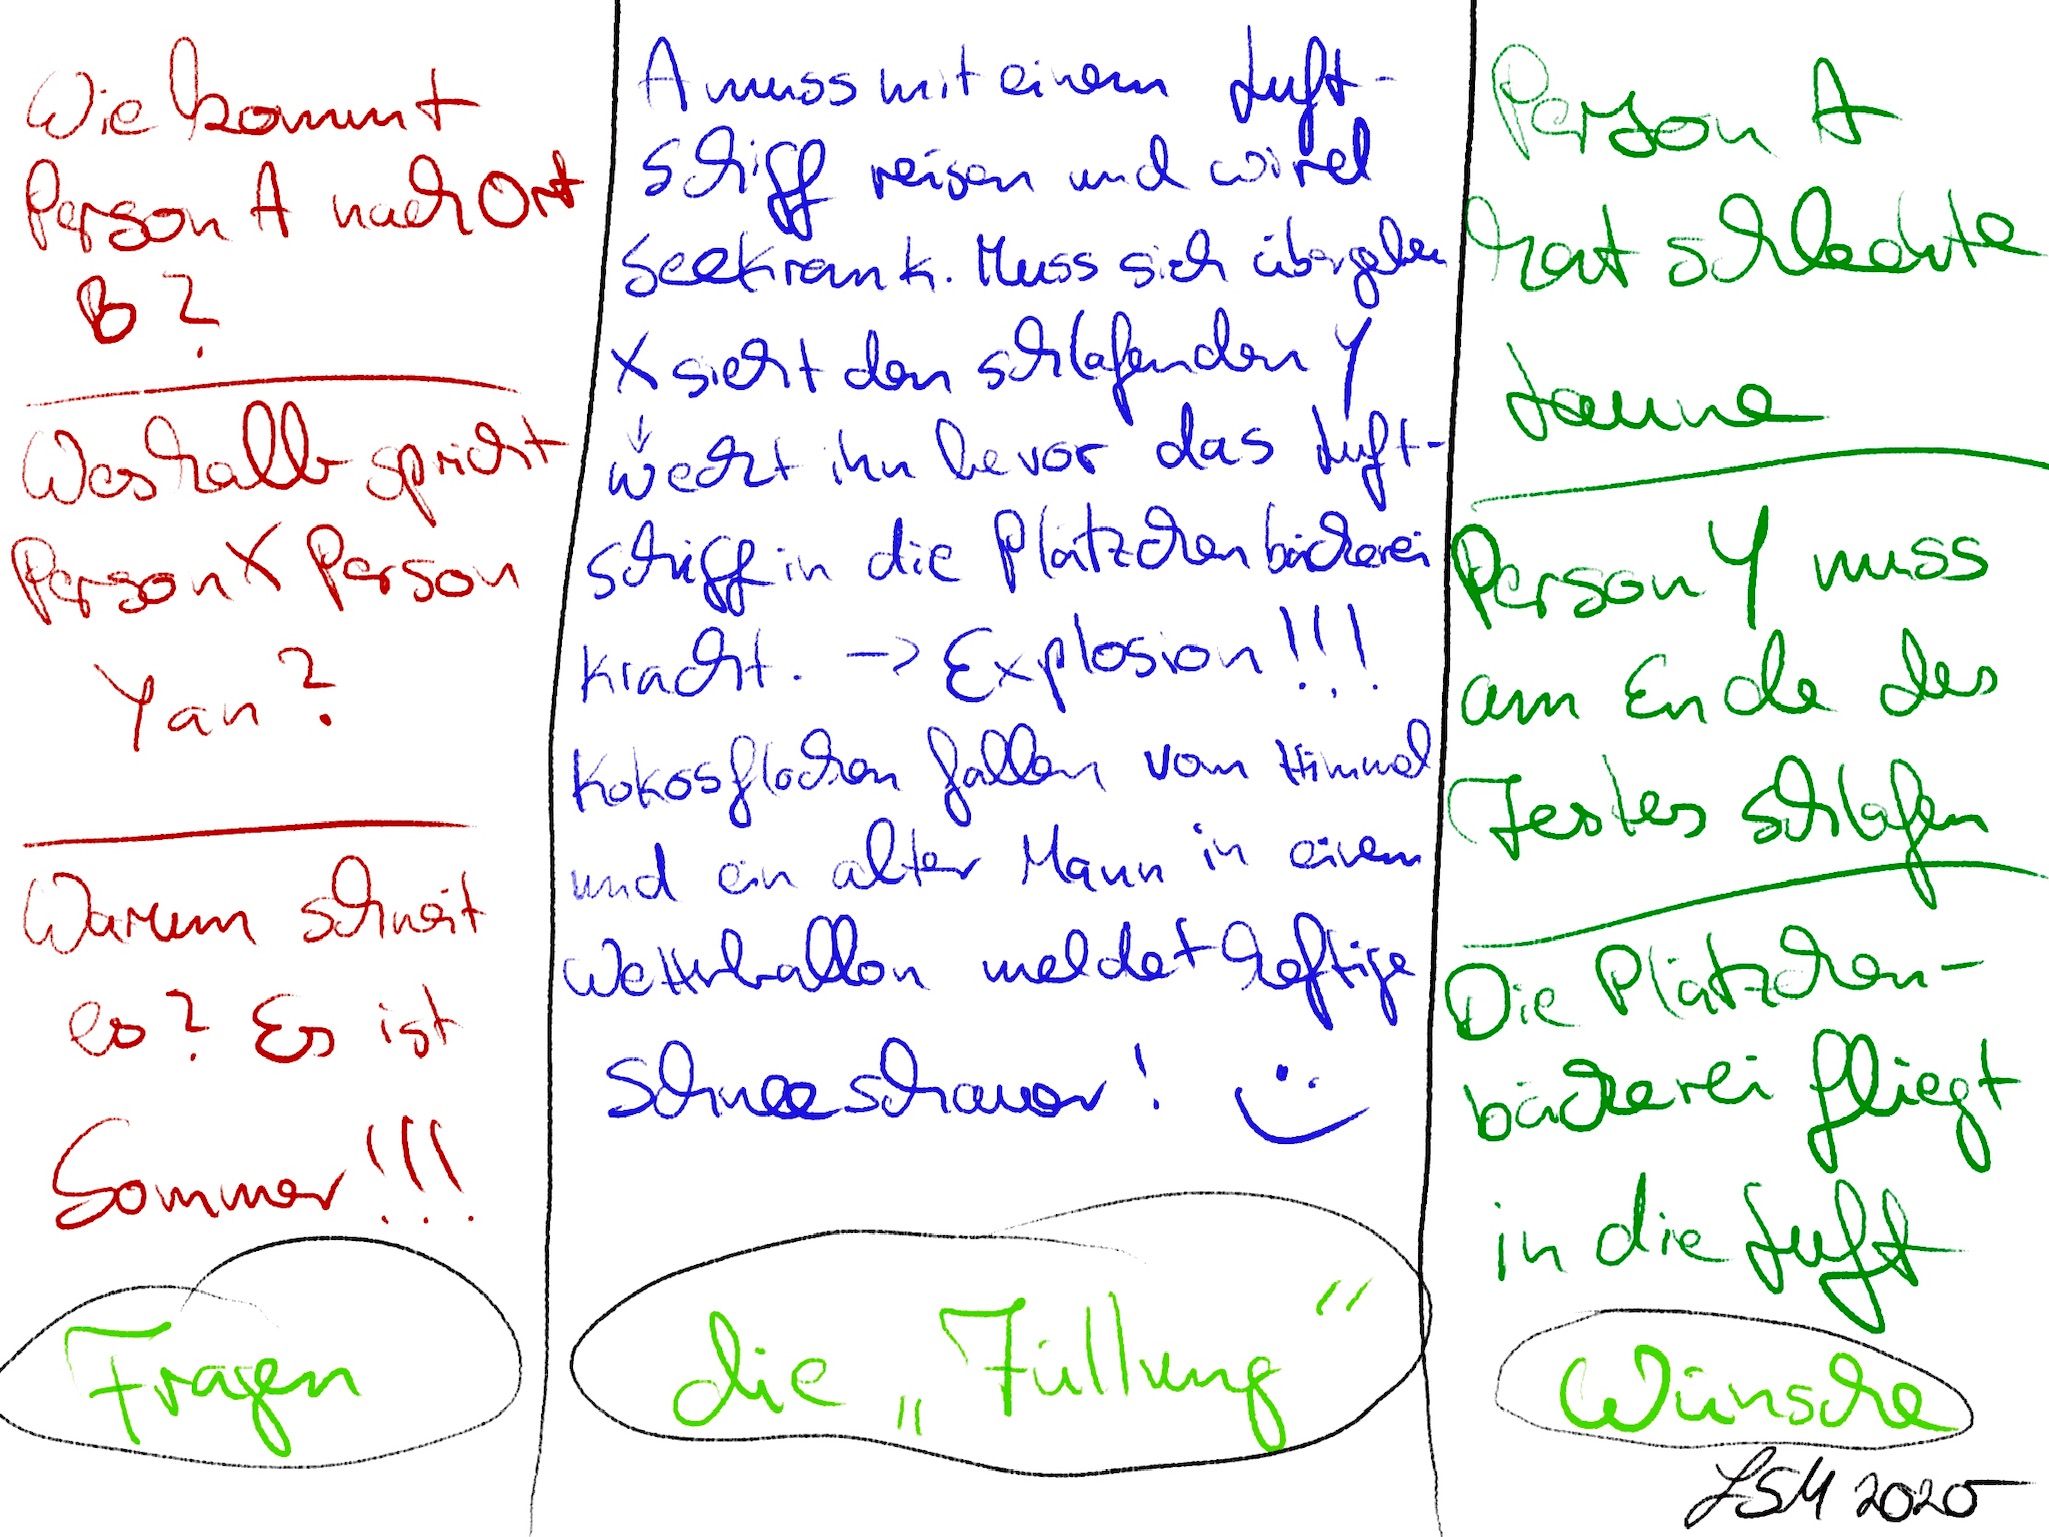 Wie kommt
Person A nach Ort
B?
Weshalb spricht
Person X Person
Y an?
Warum schneit
es? Es ist
Sommer!!!
Fragen
A muss mit einem Luft-
schiff reisen und wird
Seekrank. Muss sich übergeben
X sieht den schlafenden Y
↓
weckt ihn bevor das Luft-
schiff in die Plätzchenbäckerei
kracht. -> Explosion!!!
Kokosflocken fallen vom Himmel
und ein alter Mann in einem
Wetterballon meldet heftige
Schneeschauer! :)
die „Füllung"
Person A
hat schlechte
Laune
Person Y muss
am Ende des
Textes schlafen
Die Plätzchen-
bäckerei fliegt
in die Luft
Wünsche
LSM 2020